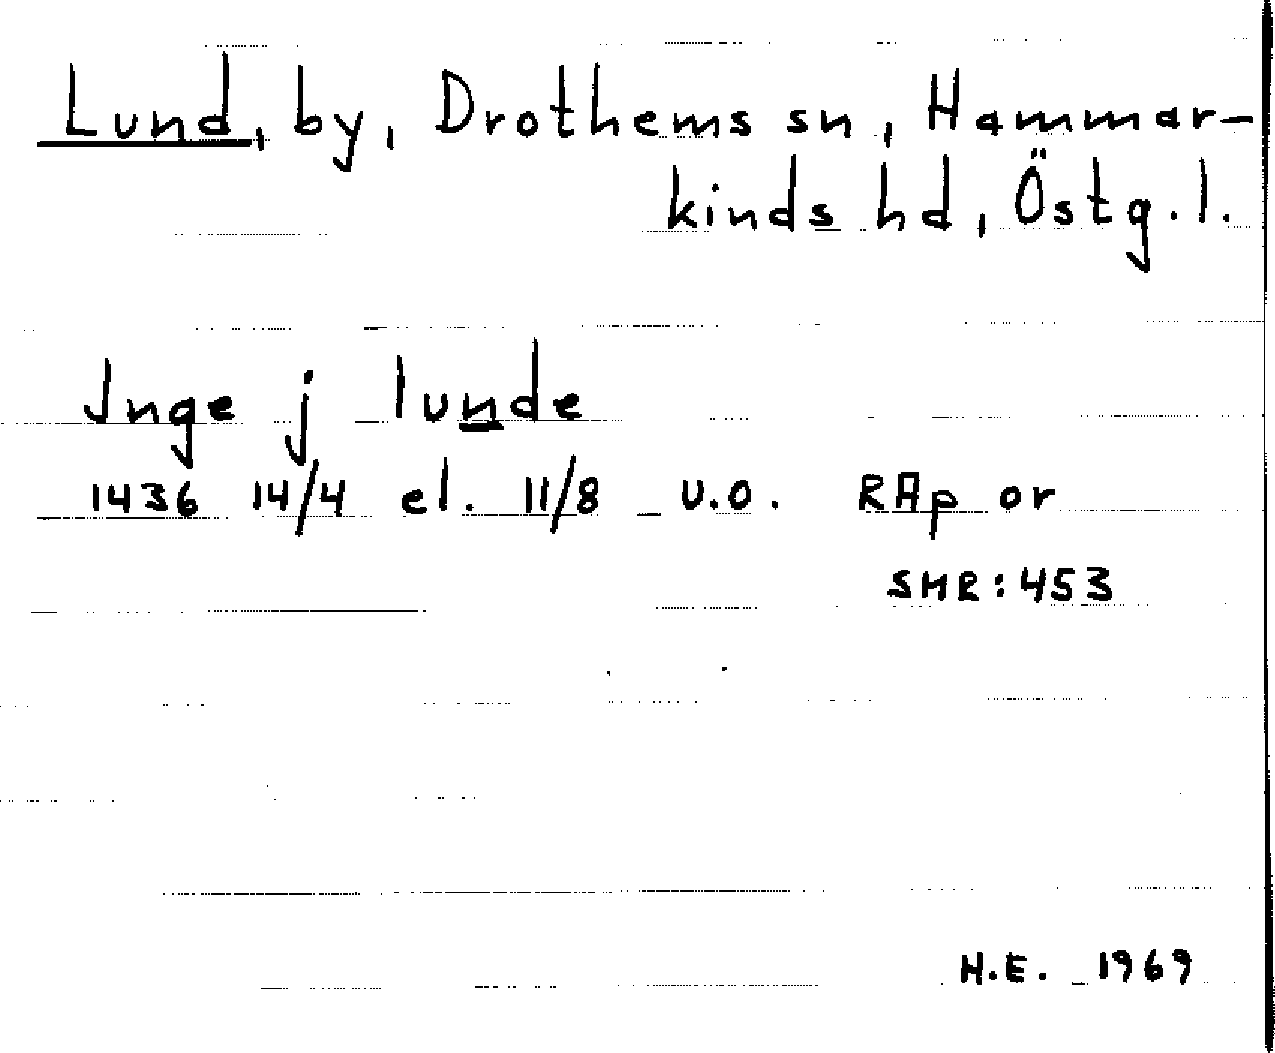 Lund, by, Drothems sn, Hammar-
kinds hd, Östg.l.
Inge j lunde
1436 14/4 el. 11/8 u.o. RAp or
SMR: 453
H.E. 1969